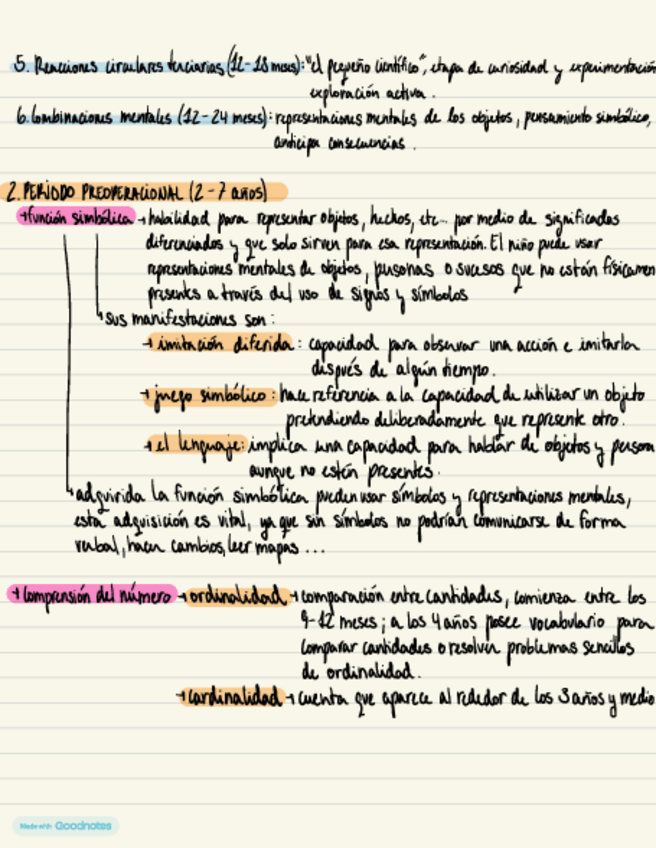 5. Reacciones circulares terciarias (12-18 meses): "el pequeño científico", etapa de curiosidad y experimentación
exploración activa.
6. Combinaciones mentales (12-24 meses): representaciones mentales de los objetos, pensamiento simbólico,
anticipa consecuencias.
2. PERIODO PREOPERACIONAL (2-7 años)
→ función simbólica → habilidad para representar objetos, hechos, etc... por medio de significados
diferenciados y que solo sirven para esa representación. El niño puede usar
representaciones mentales de objetos, personas o sucesos que no están físicamen
presentes a través del uso de signos y símbolos
↳ sus manifestaciones son:
→ imitación diferida: capacidad para observar una acción e imitarla
después de algún tiempo.
→ juego simbólico: hace referencia a la capacidad de utilizar un objeto
pretendiendo deliberadamente que represente otro.
→ el lenguaje: implica una capacidad para hablar de objetos y persona
aunque no estén presentes.
↳ adquirida la función simbólica pueden usar símbolos y representaciones mentales,
esta adquisición es vital, ya que sin símbolos no podrían comunicarse de forma
verbal, hacer cambios, leer mapas ...
→ comprensión del número → ordinalidad → comparación entre cantidades, comienza entre los
9-12 meses; a los 4 años posee vocabulario para
comparar cantidades o resolver problemas sencillos
de ordinalidad.
→ cardinalidad → cuenta que aparece al rededor de los 3 años y medio
Made with Goodnotes